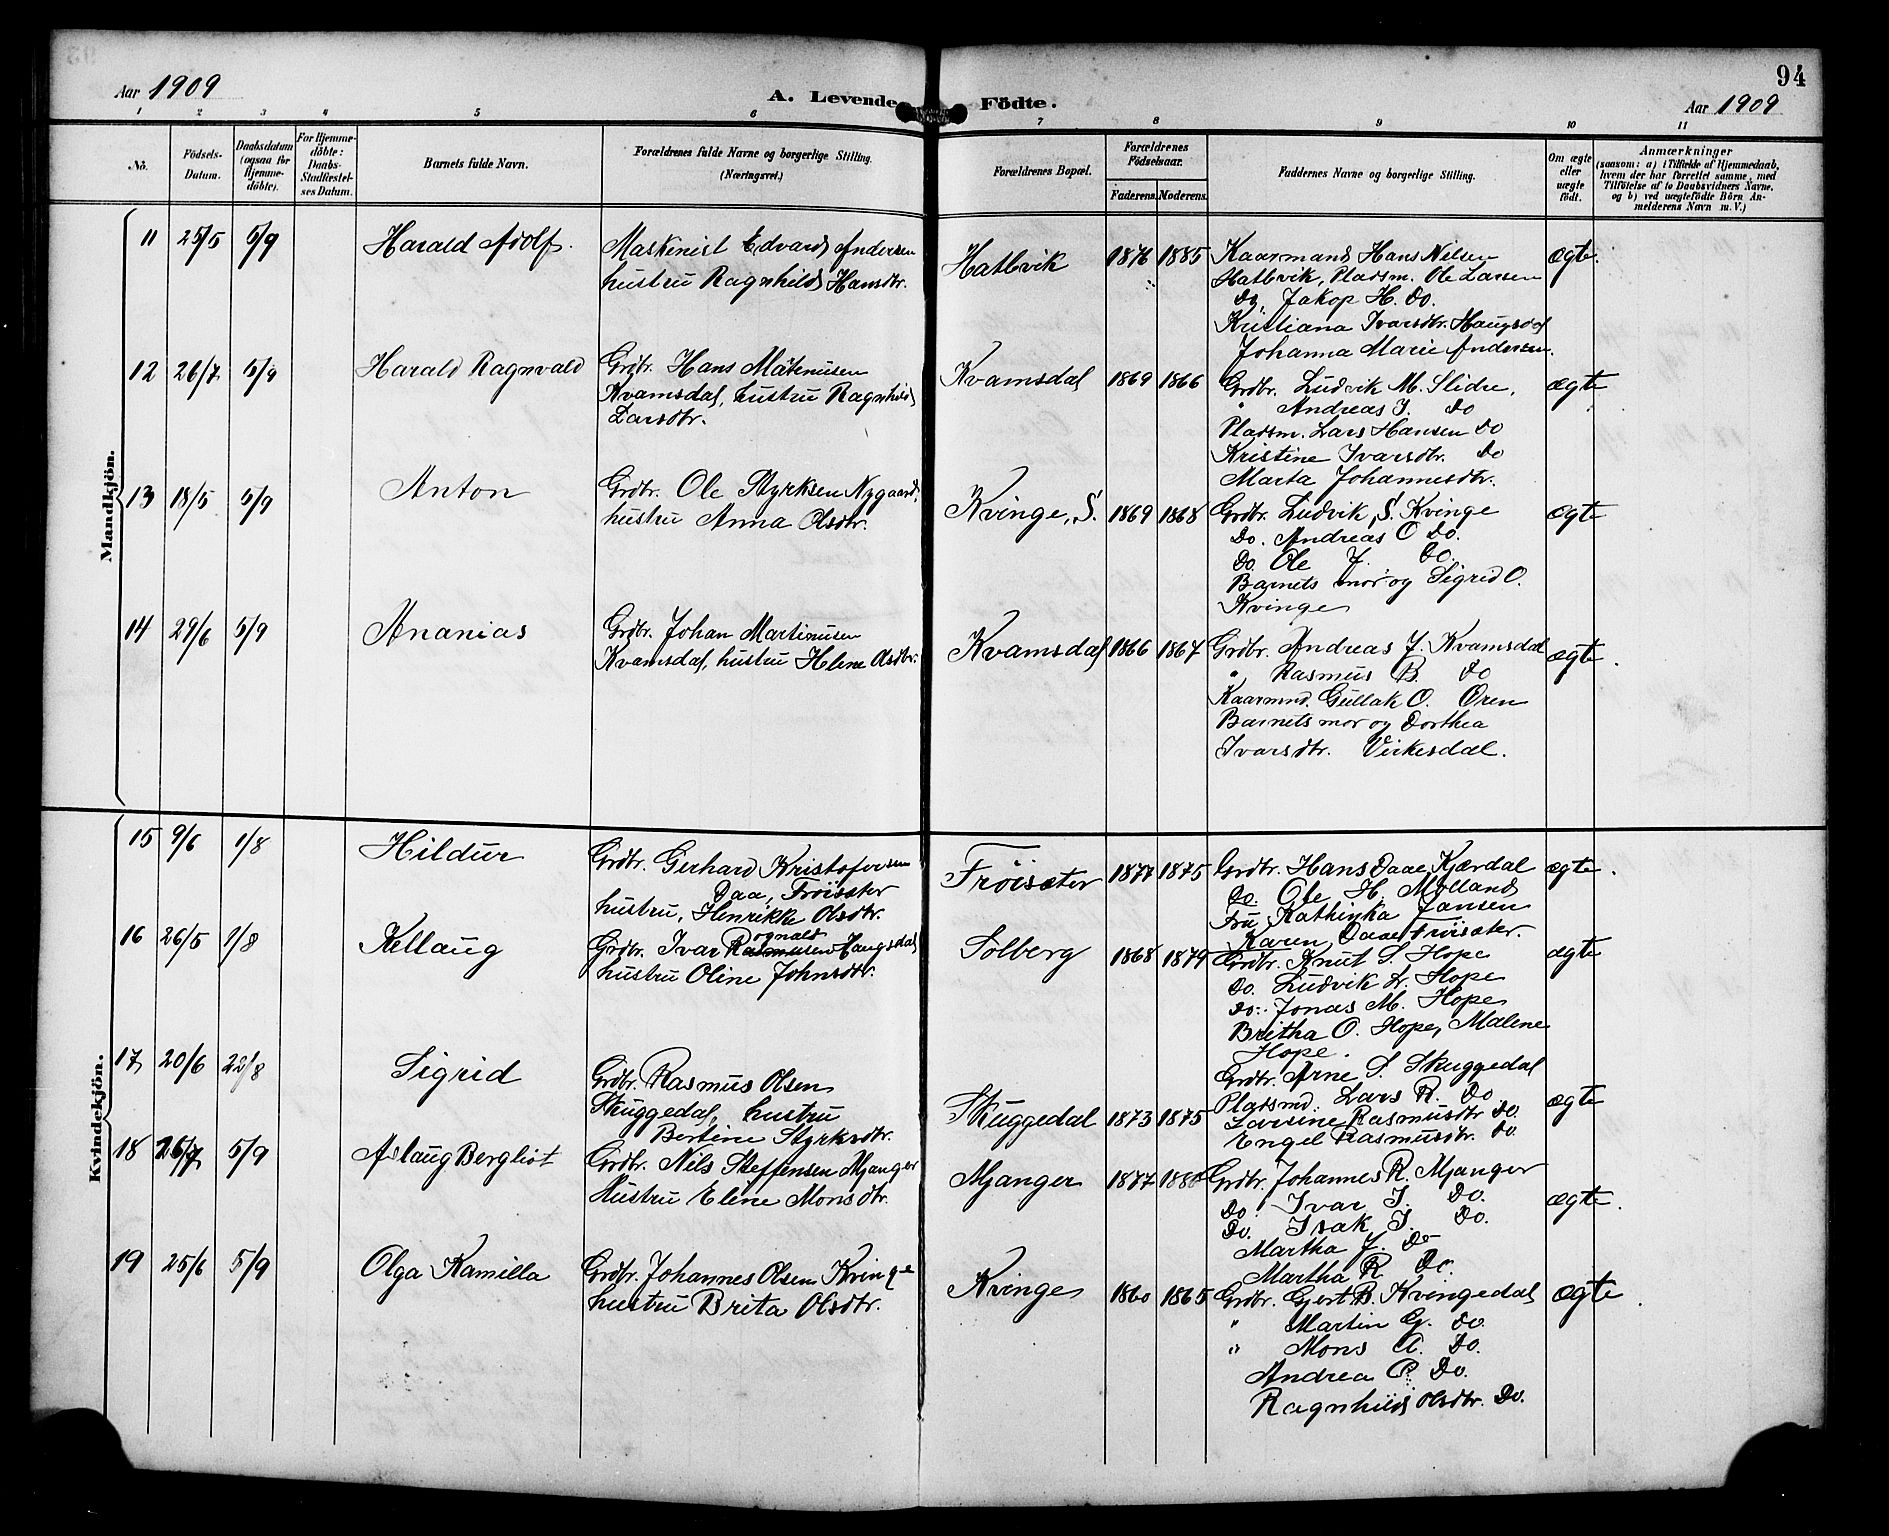 94
Aar 1909
A. Levende Födte.
Aar 1909
1 2 3 4 5 6 7 8 9 10 11
No.
Födsels-Datum.
Daabsdatum (ogsaa for Hjemme-döbte).
For Hjemme-döbte: Daabs-Stadfæstel-ses Datum.
Barnets fulde Navn.
Forældrenes fulde Navne og borgerlige Stilling.
(Næringsvei.)
Forældrenes Bopæl.
Forældrenes Födselsaar.
Faderens. Moderens.
Faddernes Navne og borgerlige Stilling.
Om ægte eller uægte födt.
Anmærkninger
(saasom: a) i Tilfælde af Hjemmedaab,
hvem der har forrettet samme, med
Tilföielse af to Daabsvidners Navne,
og b) ved uægtefödte Börn An-
melderens Navn m. V.)
Mandkjön.
11 25/5 5/9 Harald Adolf.
Maskinist Edvard Andersen
hustru Ragnhild Hansdtr.
Hatlvik 1876 1885
Kaarmand Hans Nilsen
Hatlvik, Pladsm. Ole Larsen
Do, Jakop H. Do.
Kristiana Ivarsdtr. Haugsdal
Johanna Marie Andersen.
ægte.
12 26/7 5/9 Harald Ragnvald
Grdbr. Hans Matinusen
Kvamsdal, hustru Ragnhild
Larsdtr.
Kvamsdal 1869 1866
Grdbr. Ludvik M. Slidre,
" Andreas J. Do
Pladsm. Lars Hansen Do
Kristine Ivarsdtr. Do
Marta Johannesdtr.
ægte
13 18/5 5/9 Anton
Grdbr. Ole Styrksen Nygaard,
hustru Anna Olsdtr.
Kvinge, S. 1869 1868
Grdbr. Ludvik S. Kvinge
Do. Andreas O Do.
Do. Ole J. Do.
Barnets mor og Sigrid O.
Kvinge
ægte
14 29/6 5/9 Ananias
Grdbr. Johan Martinusen
Kvamsdal, hustru Helene Olsdtr.
Kvamsdal 1866 1867
Grdbr. Andreas J. Kvamsdal
" Rasmus B. Do
Kaarmnd. Gullak O. Oren
Barnets mor og Dorthea
Ivarsdtr. Virkesdal.
ægte.
Kvindekjön.
15 9/6 1/8 Hildur
Grdbr. Gerhard Kristofersen
Daa, Fröisæter
hustru, Henrikke Olsdtr.
Fröisæter 1877 1875
Grdbr. Hans Daae Kjærdal
Do. Ole H. Mölland
Fru Kathinka Jansen
Karen Daae Fröisæter.
ægte.
16 26/5 1/8 Kellaug
Grdbr. Ivar Rognald Haugsdal
hustru Oline Johnsdtr.
Solberg 1868 1879
Grdbr. Knut S. Hope
Do. Ludvik L. Hope
Do. Jonas M. Hope
Britha O. Hope, Malene
Hope.
ægte
17 20/6 22/8 Sigrid
Grdbr. Rasmus Olsen
Skuggedal, hustru
Bertine Styrksdtr.
Skuggedal 1873 1875
Grdbr. Arne S. Skuggedal
Pladsmd. Lars R. Do
Lovisine Rasmusdtr Do.
Engel Rasmusdtr. Do
ægte
18 26/7 5/9 Aslaug Bergliot
Grdbr. Nils Steffensen Mjanger
Hustru Elene Monsdtr.
Mjanger 1877 1880
Grdbr. Johannes R. Mjanger
Do. Ivar J. Do.
Do. Isak J. Do.
Martha J. Do
Martha R. Do.
ægte.
19 25/6 5/9 Olga Kamilla
Grdbr. Johannes Olsen Kvinge
hustru Brita Olsdtr.
Kvinge 1860 1865
Grdbr. Gjert B. Kvingedal
" Martin G. Do.
" Mons A. Do.
Andrea P. Do.
Ragnhild Olsdtr. Do.
ægte